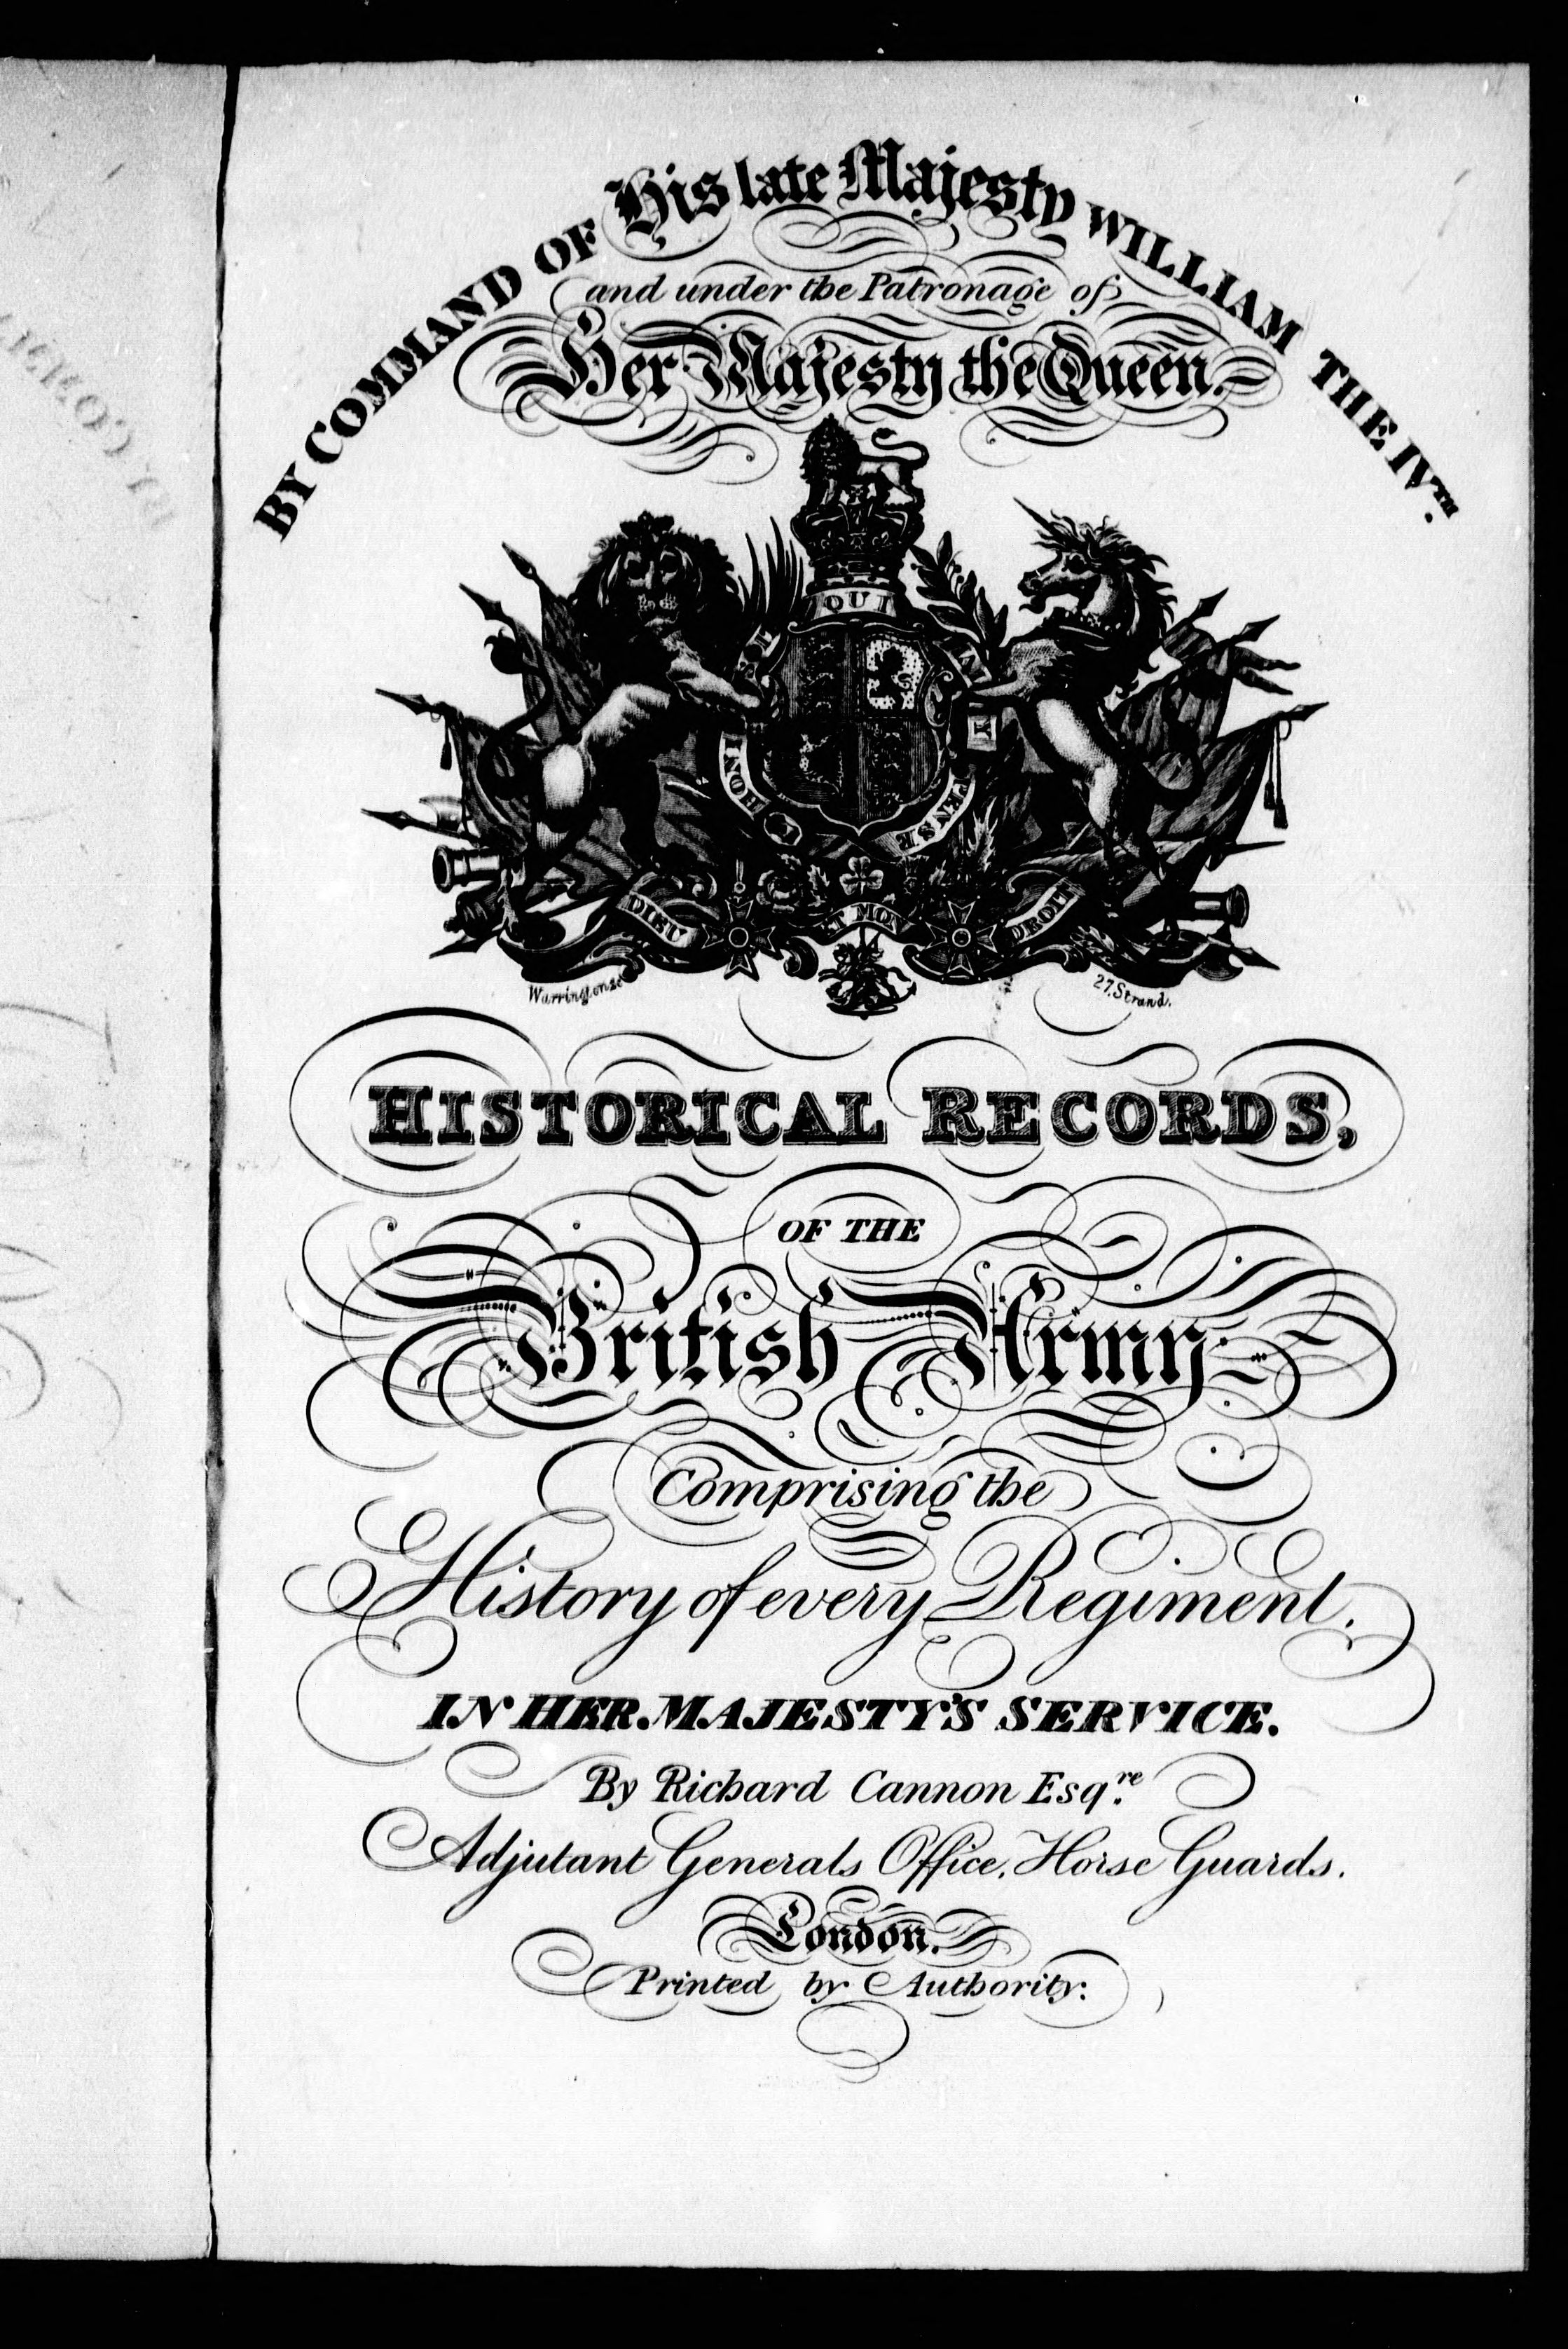 BY COMMAND OF His late Majesty WILLIAM THE IV.TH
and under the Patronage of
Her Majesty the Queen.
QUI
HONI
Y
PENSE
DIEU ET MON DROIT
Warrington sc
27, Strand.
HISTORICAL RECORDS,
OF THE
British Army
Comprising the
History of every Regiment
IN HER MAJESTY'S SERVICE.
By Richard Cannon Esq.re
Adjutant Generals Office, Horse Guards.
London.
Printed by Authority: